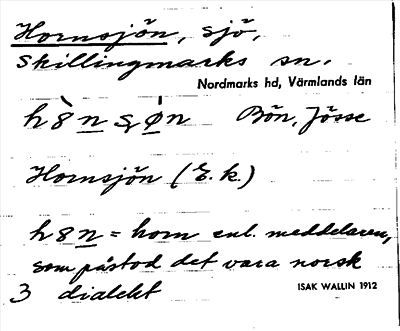 Hornsjön, sjö,
Skillingmarks sn.
Nordmarks hd, Värmlands län
Bön, Jösse
Hornsjön (E.k.)
h8n = horn enl. meddelaren,
som påstod det vara norsk
3 dialekt
ISAK WALLIN 1912